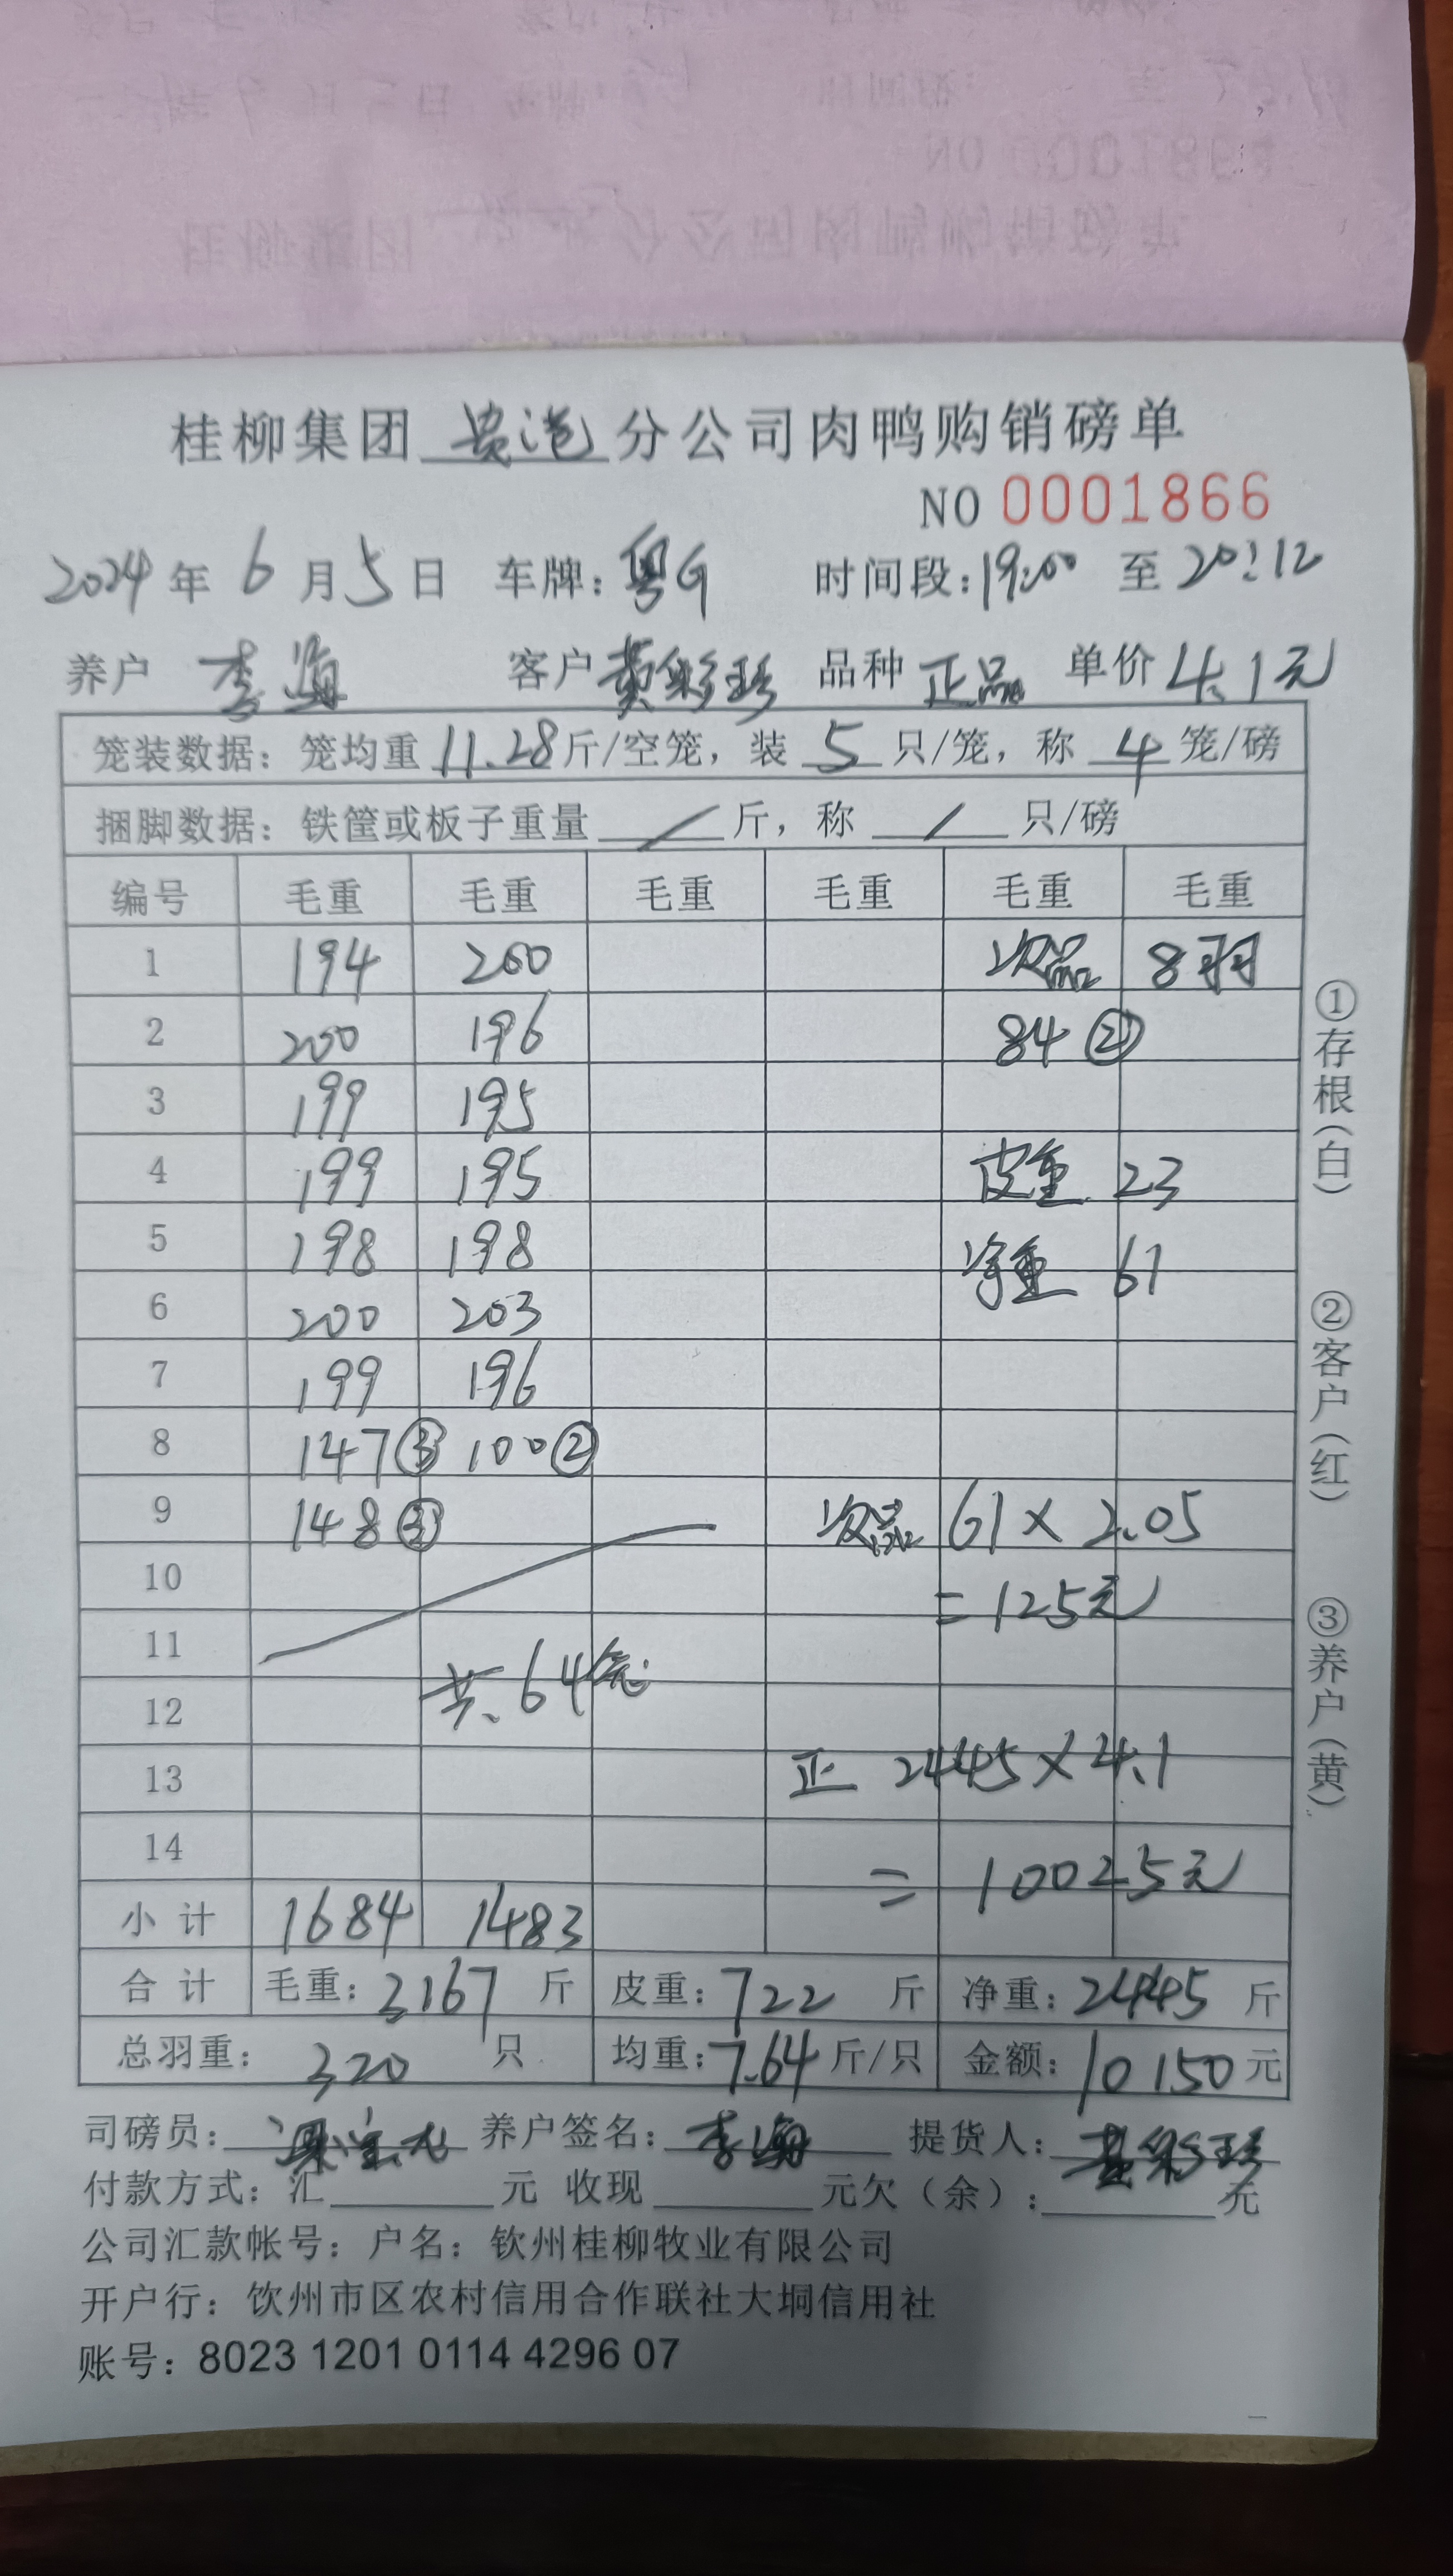 桂柳集团贵港分公司肉鸭购销磅单
NO 0001866
2024年6月5日 车牌：粤G 时间段：19:00 至 20:12
养户 李海 客户 黄彩珍 品种 正品 单价 4.1元
笼装数据：笼均重 11.28 斤/空笼，装 5 只/笼，称 4 笼/磅
捆脚数据：铁筐或板子重量 / 斤，称 / 只/磅
编号 毛重 毛重 毛重 毛重 毛重 毛重
1 194 200 次品 8羽
2 200 196 84 ②
3 199 195
4 199 195 皮重 23
5 198 198 净重 61
6 200 203
7 199 196
8 147 ③ 100 ②
9 148 ③ 次品 61×2.05
10 =125元
11
12 共64笼
13 正 2445×4.1
14 = 10025元
小计 1684 1483
合计 毛重：3167 斤 皮重：722 斤 净重：2445 斤
总羽重：320 只 均重：7.64 斤/只 金额：10150 元
司磅员： 养户签名：李海 提货人：黄彩珍
付款方式：汇 元 收现 元欠（余）： 元
公司汇款帐号：户名：钦州桂柳牧业有限公司
开户行：饮州市区农村信用合作联社大垌信用社
账号：8023 1201 0114 4296 07
①存根（白）
②客户（红）
③养户（黄）